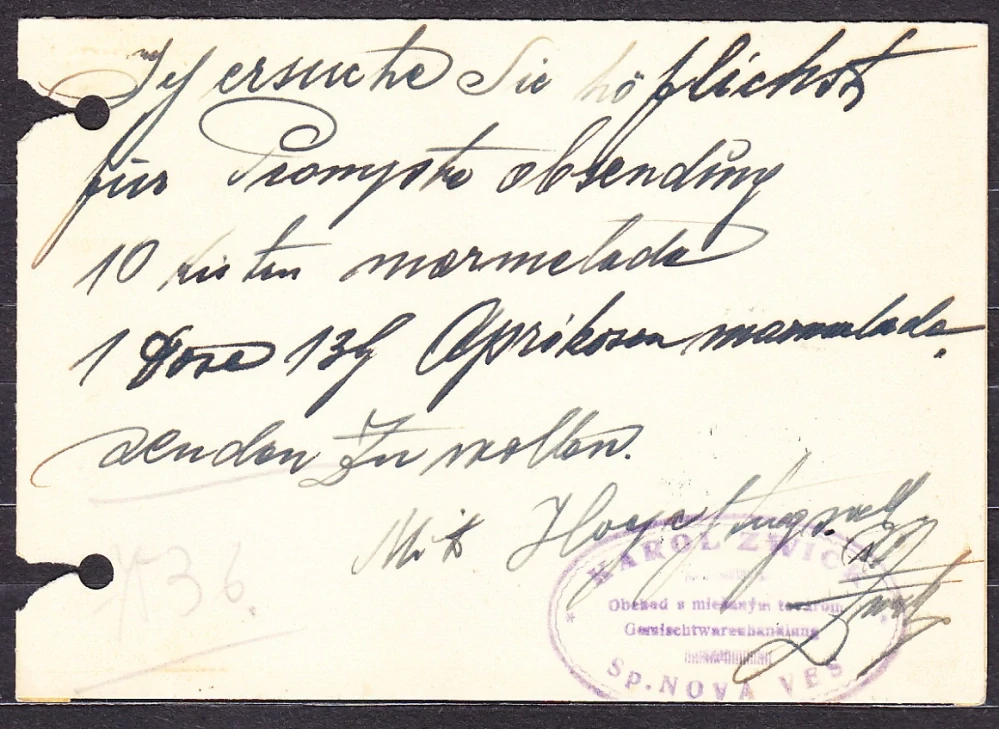 Ich ersuche Sie höflichst
für Prompte absendung
10 kisten marmelada
1 Dose 13g Aprikosen marmelada.
senden Zu wollen.
Mit
KAROL ZWICK
Obchod s miešaným tovarom
Gemischtwarenhandlung
Sp. NOVÁ VES
K36.